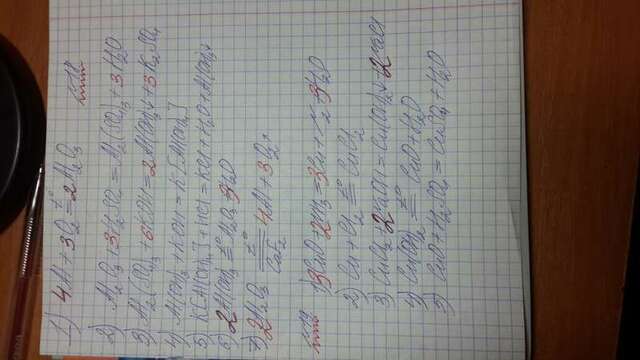 1) 4Al + 3O₂ =t° 2Al₂O₃
2) Al₂O₃ + 3H₂SO₄ = Al₂(SO₄)₃ + 3H₂O
3) Al₂(SO₄)₃ + 6KOH = 2Al(OH)₃↓ + 3K₂SO₄
4) Al(OH)₃ + KOH = K[Al(OH)₄]
5) K[Al(OH)₄] + HCl = KCl + H₂O + Al(OH)₃↓
6) 2Al(OH)₃ =t° Al₂O₃ 3H₂O
7) 2Al₂O₃ 4Al + 3O₂↑
1) 3CuO 2NH₃ = 3Cu + N₂ 3H₂O
2) Cu + Cl₂ =t° CuCl₂
3) CuCl₂ 2NaOH = Cu(OH)₂↓ + 2NaCl
4) Cu(OH)₂ =t° CuO + H₂O
5) CuO + H₂SO₄ = CuSO₄ + H₂O